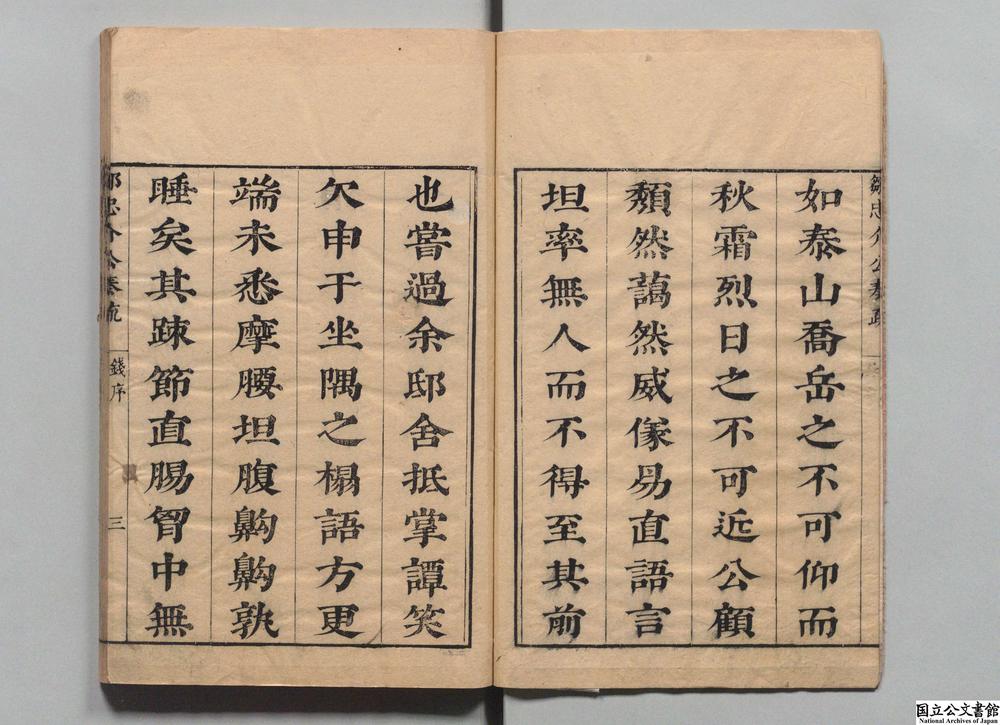 如泰山喬岳之不可仰而
秋霜烈日之不可近公顧
頹然藹然威儀易直語言
坦率無人而不得至其前
鄒忠介公奏疏
也嘗過余邸舍抵掌譚笑
欠申于坐隅之榻語方更
端未悉摩腰坦腹齁齁孰
睡矣其踈節直腸胷中無
鄒忠介公奏疏
錢序
三
国立公文書館
National Archives of Japan